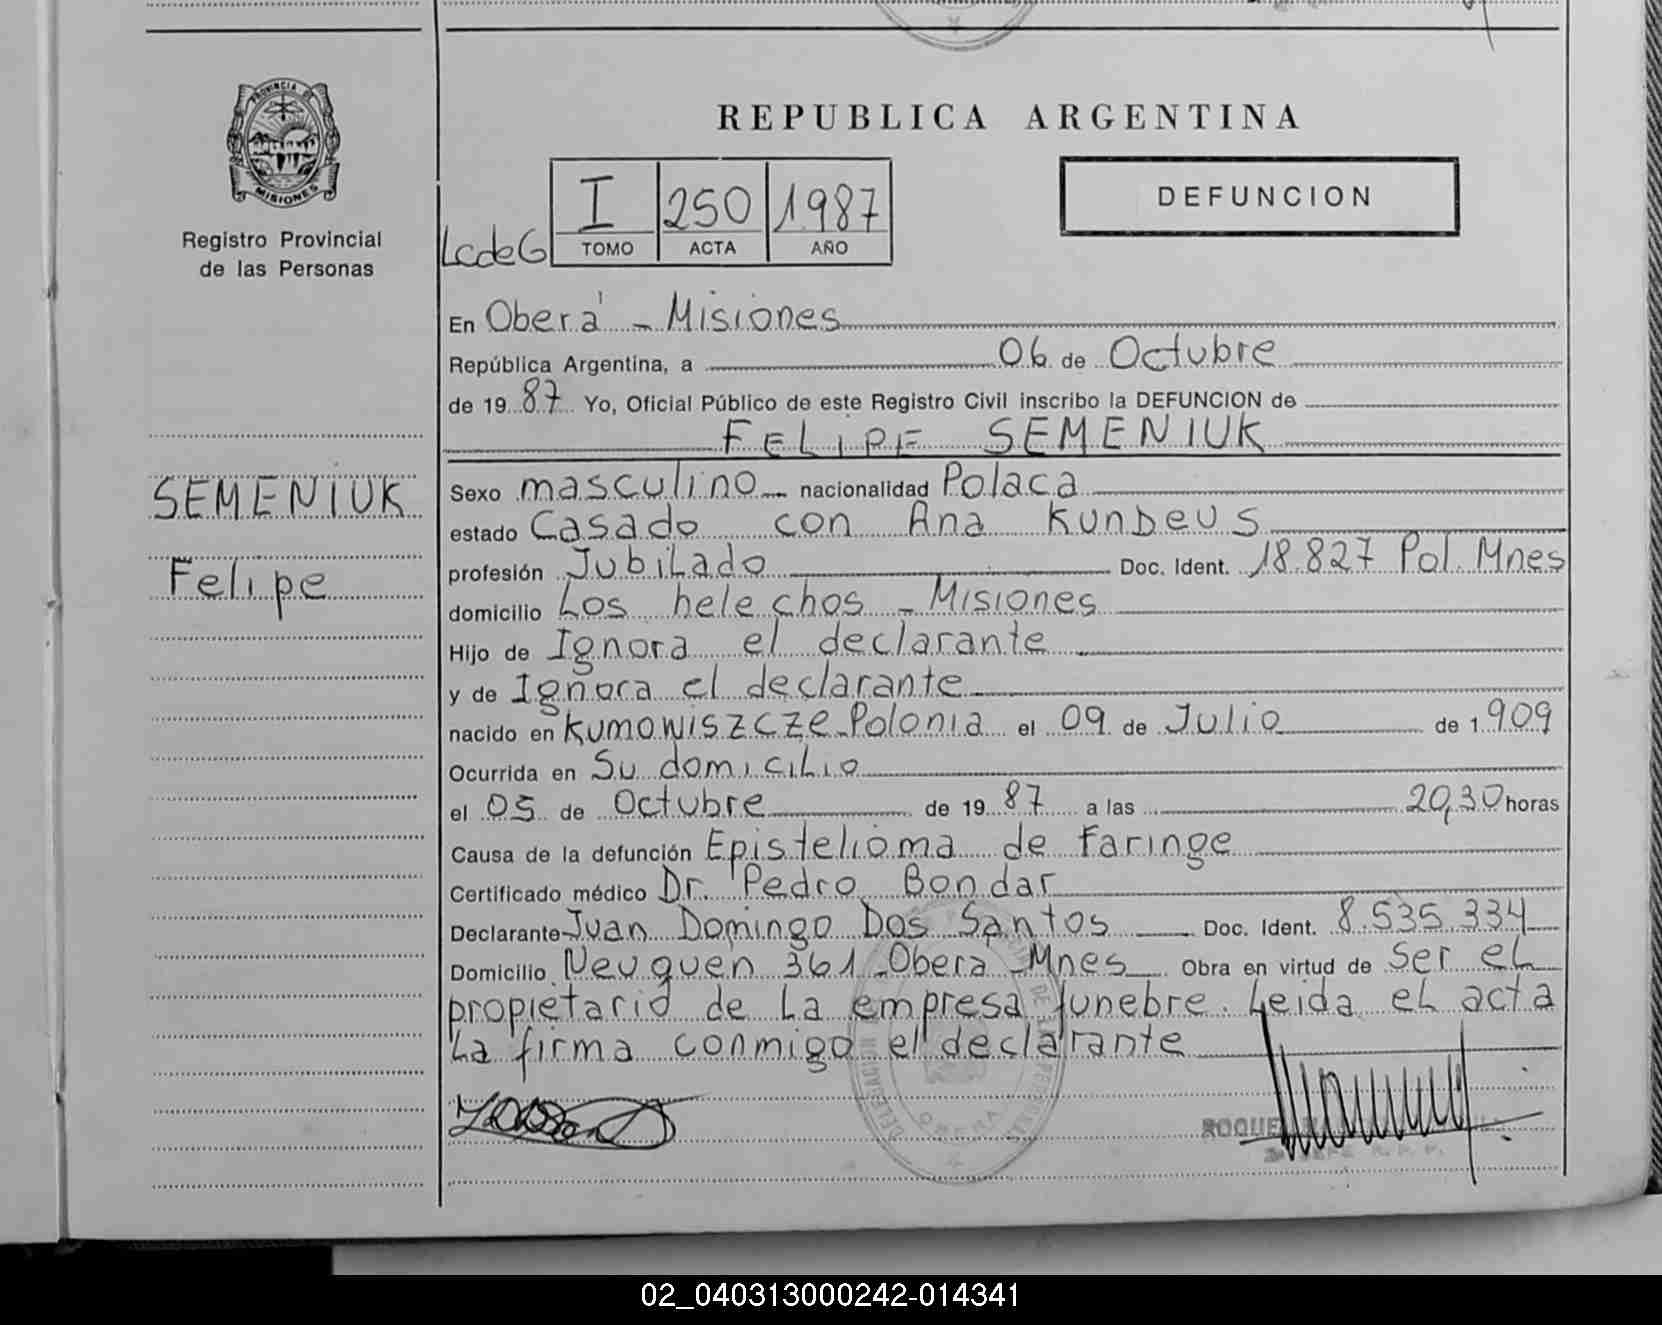 PROVINCIA DE
MISIONES
Registro Provincial
de las Personas
REPUBLICA ARGENTINA
DEFUNCION
LcdeG
I 250 1987
TOMO ACTA AÑO
En Oberá - Misiones
República Argentina, a 06 de Octubre
de 1987 Yo, Oficial Público de este Registro Civil inscribo la DEFUNCION de
FELIPE SEMENIUK
SEMENIUK
Felipe
Sexo masculino nacionalidad Polaca
estado Casado con Ana KUNDEUS
profesión Jubilado Doc. Ident. 18.827 Pol. Mnes
domicilio Los helechos - Misiones
Hijo de Ignora el declarante
y de Ignora el declarante
nacido en Kumowiszcze-Polonia el 09 de Julio de 1.909
Ocurrida en Su domicilio
el 05 de Octubre de 1987 a las 20,30 horas
Causa de la defunción Epistelioma de faringe
Certificado médico Dr. Pedro Bondar
Declarante Juan Domingo Dos Santos Doc. Ident. 8.535.334
Domicilio Neuquen 361-Obera-Mnes Obra en virtud de ser el
propietario de la empresa funebre. Leida el acta
la firma conmigo el declarante
OBERA
ROQUE
02_040313000242-014341